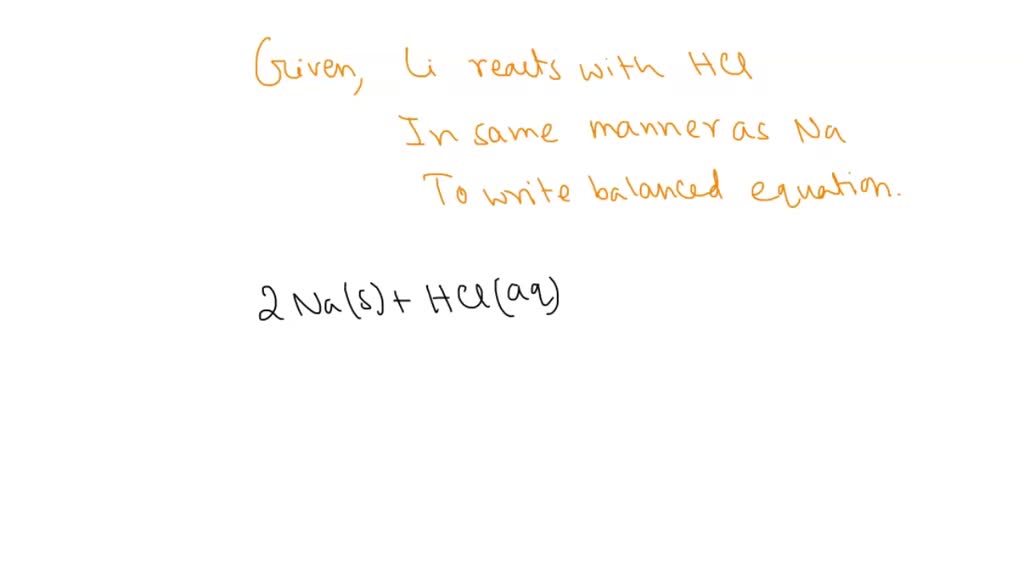 Given, Li reacts with HCl
In same manner as Na
To write balanced equation.
2 Na(s) + HCl(aq)